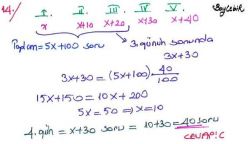 14.) I. II. III. IV. V.
x x+10 x+20 x+30 x+40
Toplam = 5x+100 soru
3. günün sonunda
3x+30
3x+30 = (5x+100) . 40/100
15x+150 = 10x+200
5x = 50 ⇒ x=10
4. gün = x+30 soru = 10+30 = 40 soru
CEVAP: C